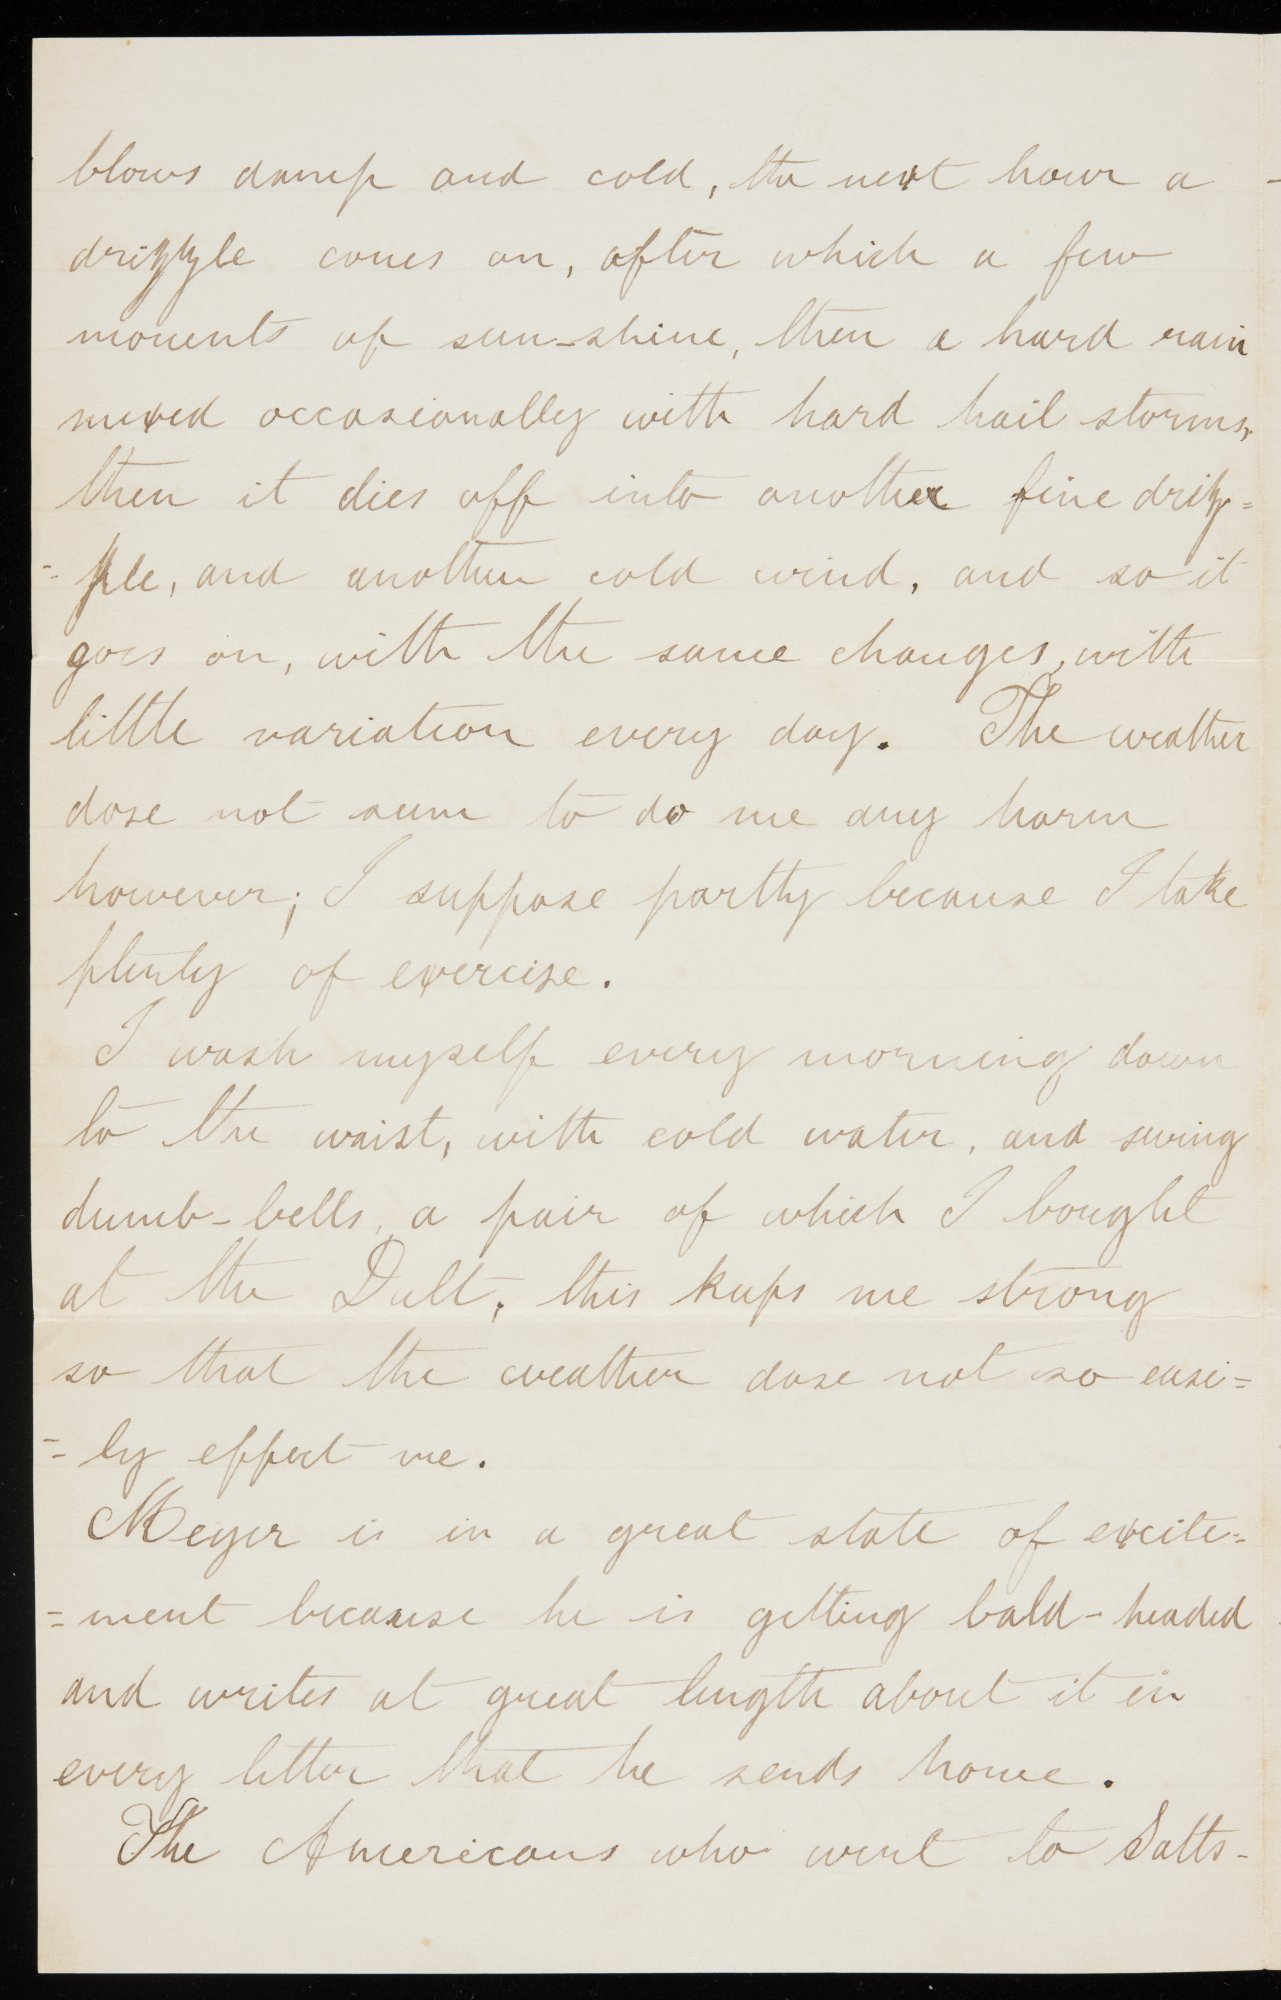 blows damp and cold, the next hour a
drizzle comes on, after which a few
moments of sun-shine, then a hard rain
mixed occasionally with hard hail storms,
then it dies off into another fine driz=
=zle, and another cold wind, and so it
goes on, with the same changes, with
little variation every day. The weather
dose not seem to do me any harm
however; I suppose partly because I take
plenty of exercise.
I wash myself every morning down
to the waist, with cold water, and swing
dumb-bells, a pair of which I bought
at the Dult, this keeps me strong
so that the weather dose not so easi=
=ly effect me.
Meyer is in a great state of excite=
=ment because he is getting bald-headed
and writes at great length about it in
every letter that he sends home.
The Americans who went to Salts-